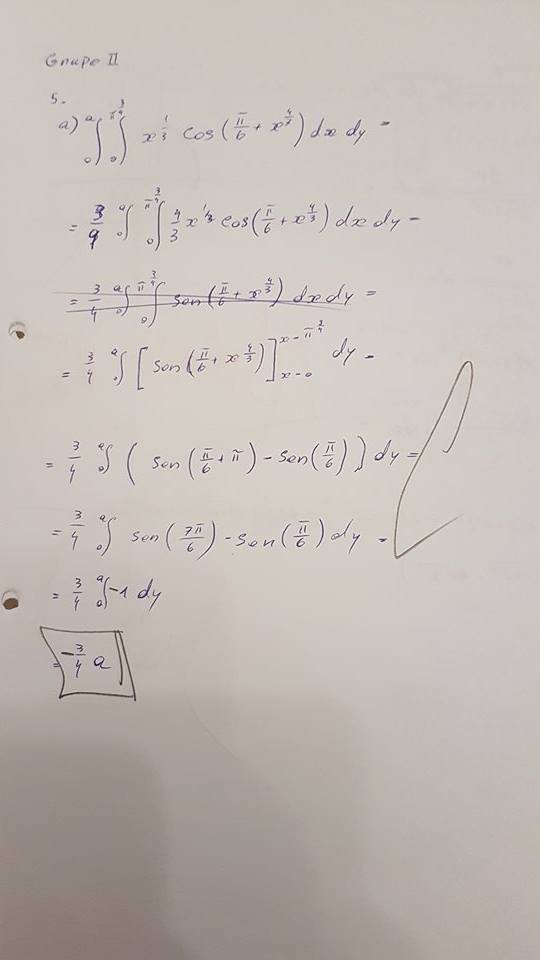 Grupo II
5.
a) ∫₀^a ∫₀^(π^(3/4)) x^(1/3) cos(π/6 + x^(4/3)) dx dy =
= 3/4 ∫₀^a ∫₀^(π^(3/4)) 4/3 x^(1/3) cos(π/6 + x^(4/3)) dx dy =
= 3/4 ∫₀^a ∫₀^(π^(3/4)) sen(π/6 + x^(4/3)) dx dy =
= 3/4 ∫₀^a [sen(π/6 + x^(4/3))]_(x=0)^(x=π^(3/4)) dy =
= 3/4 ∫₀^a (sen(π/6 + π) - sen(π/6)) dy =
= 3/4 ∫₀^a sen(7π/6) - sen(π/6) dy =
= 3/4 ∫₀^a -1 dy
= -3/4 a